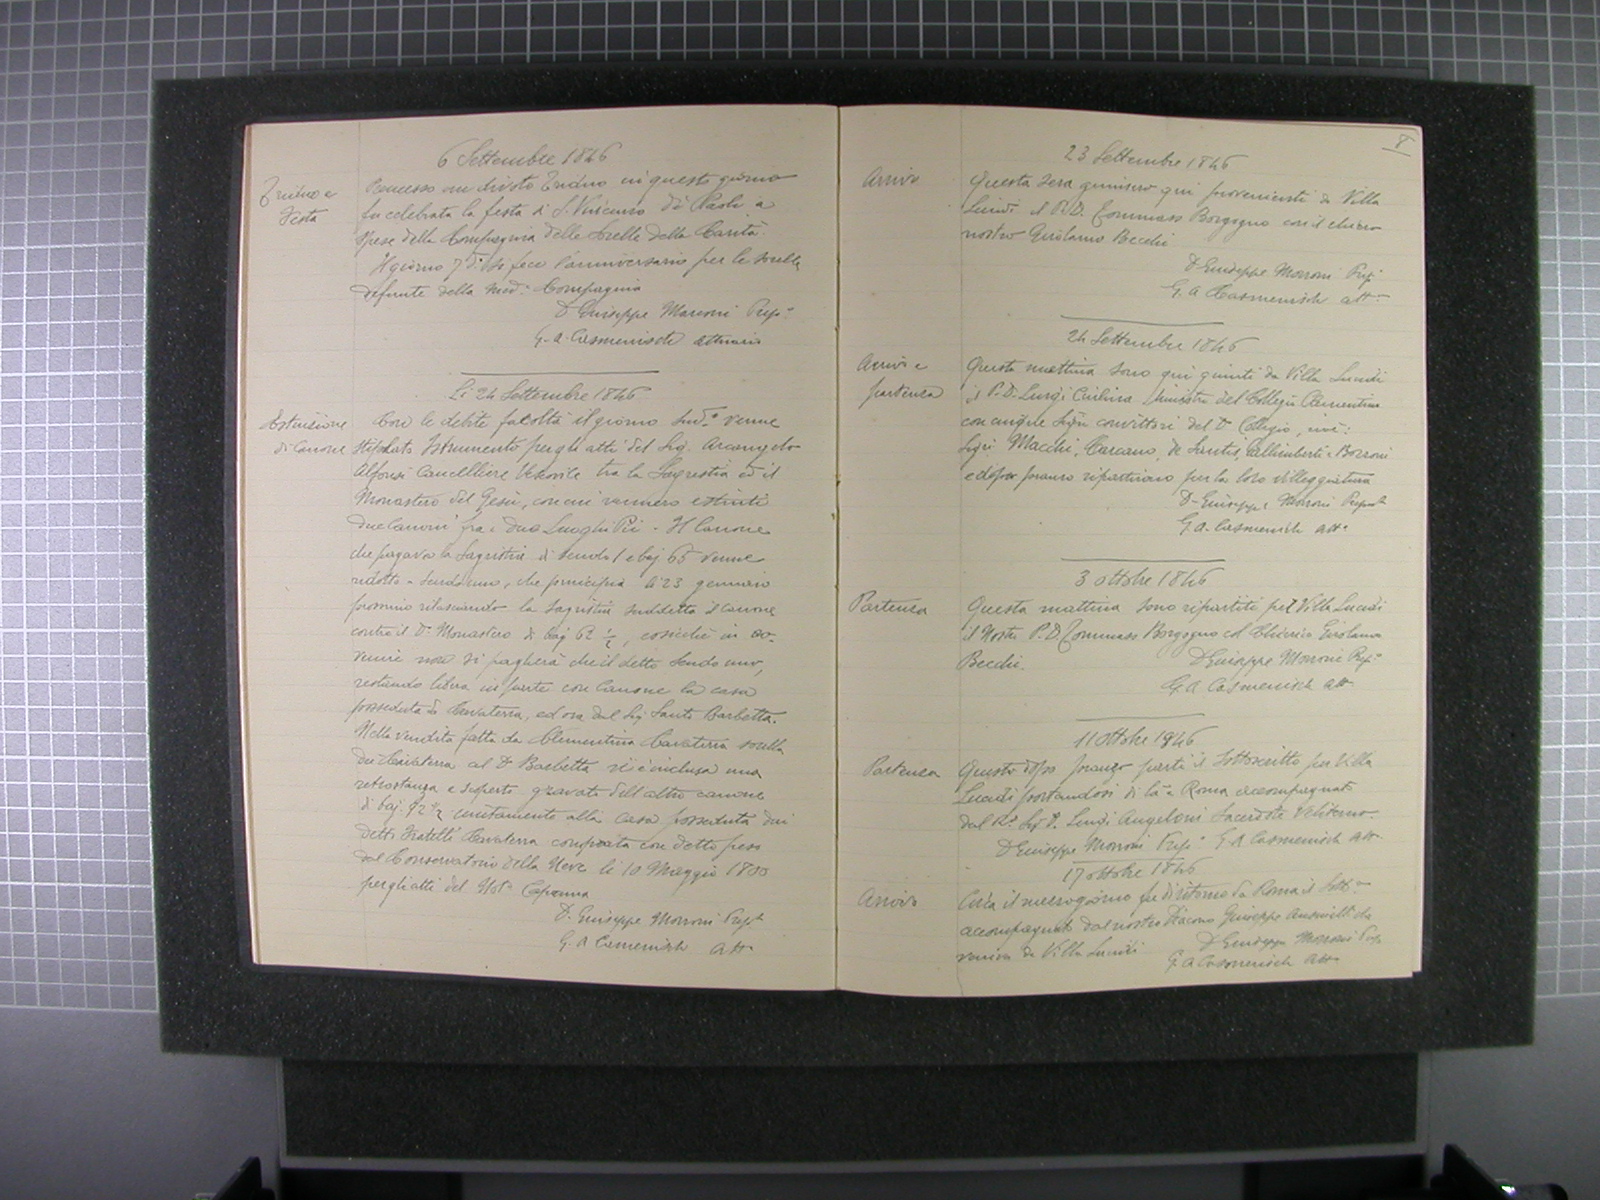 6 Settembre 1846
Triduo e
Festa
Premesso un divoto Triduo in questo giorno
fu celebrata la festa di S. Vincenzo di Paoli a
spese della Compagnia delle Sorelle della Carità.
Il giorno 7 dº. si fece l'anniversario per le sorelle
defunte della med.ª Compagnia
D. Giuseppe Marconi Prep.º
G. A. Casmenisch attuario
Li 24 Settembre 1846
Estinzione
di Canone
Con le debite facoltà il giorno sudº. venne
stipolato Istrumento per gli atti del Sig. Arcangelo
Alfonsi Cancelliere Vescovile tra la Sagrestia ed il
Monastero del Gesù, con cui vennero estinti
due Canoni fra i due Luoghi Pii - Il Canone
che pagava la Sagristia di scudo 1 e baj 65 venne
ridotto a scudo uno, che principia li 23 gennaio
prossimo rilasciando la Sagristia suddetta il canone
contro il Dº. Monastero di baj 62 ½, cosicchè in av-
venire non si pagherà che il detto Scudo uno,
restando libera in parte con Canone la casa
posseduta da Cavaterra, ed ora dal Sig Santi Barbetta.
Nella vendita fatta da Clementina Cavaterra sorella
dei Cavaterra al Dº Barbetta vi è inclusa una
retrostanza e scoperto gravata dell'altro canone
di baj. 62 ½ unitamente alla Casa posseduta dai
detti Fratelli Cavaterra comprata con detto peso
dal Conservatorio della Neve li 10 Maggio 1800
per gli atti del Not.º Capanna
D. Giuseppe Morroni Prepº
G. A Casmenisch att.º
8
23 Settembre 1846
Arrivo
Questa sera giunsero qui provenienti da Villa
Lucidi il P. D. Tommaso Borgogno con il chierico
nostro Girolamo Becchi
D Giuseppe Morroni Prepº
G. A Casmenisch att.º
24 Settembre 1846
Arrivi e
partenza
Questa mattina sono qui giunti da Villa Lucidi
il P. D. Luigi Ministro del Collegio Clementino
con cinque Sigri convittori del Dº Collegio, cioè:
Sigri Macchi, Carcano, de Santis, Gallimberti e Borroni
e dopo pranzo ripartirono per la loro villeggiatura
D. Giuseppe Morroni Prepº
G. A. Casmenisch att.º
3 ottobre 1846
Partenza
Questa mattina sono ripartiti per Villa Lucidi
il Nostro P. D. Tommaso Borgogno col Chierico Girolamo
Becchi.
D Giuseppe Morroni Prep.º
G. A Casmenisch att.
11 Ottobre 1846
Partenza
Questo dopo pranzo partì il Sottoscritto per Villa
Lucidi portandosi di là a Roma accompagnato
dal R.º Sig D. Luigi Angeloni Sacerdote Veliterno.
D Giuseppe Morroni Prep.º G. A Casmenisch att.
17 ottobre 1846
Arrivo
Circa il mezzogiorno fe' ritorno da Roma il Sott.º
accompagnato dal nostro Diacono Giuseppe che
veniva da Villa Lucidi
D Giuseppe Morroni Prep.
G. A Casmenisch att.º